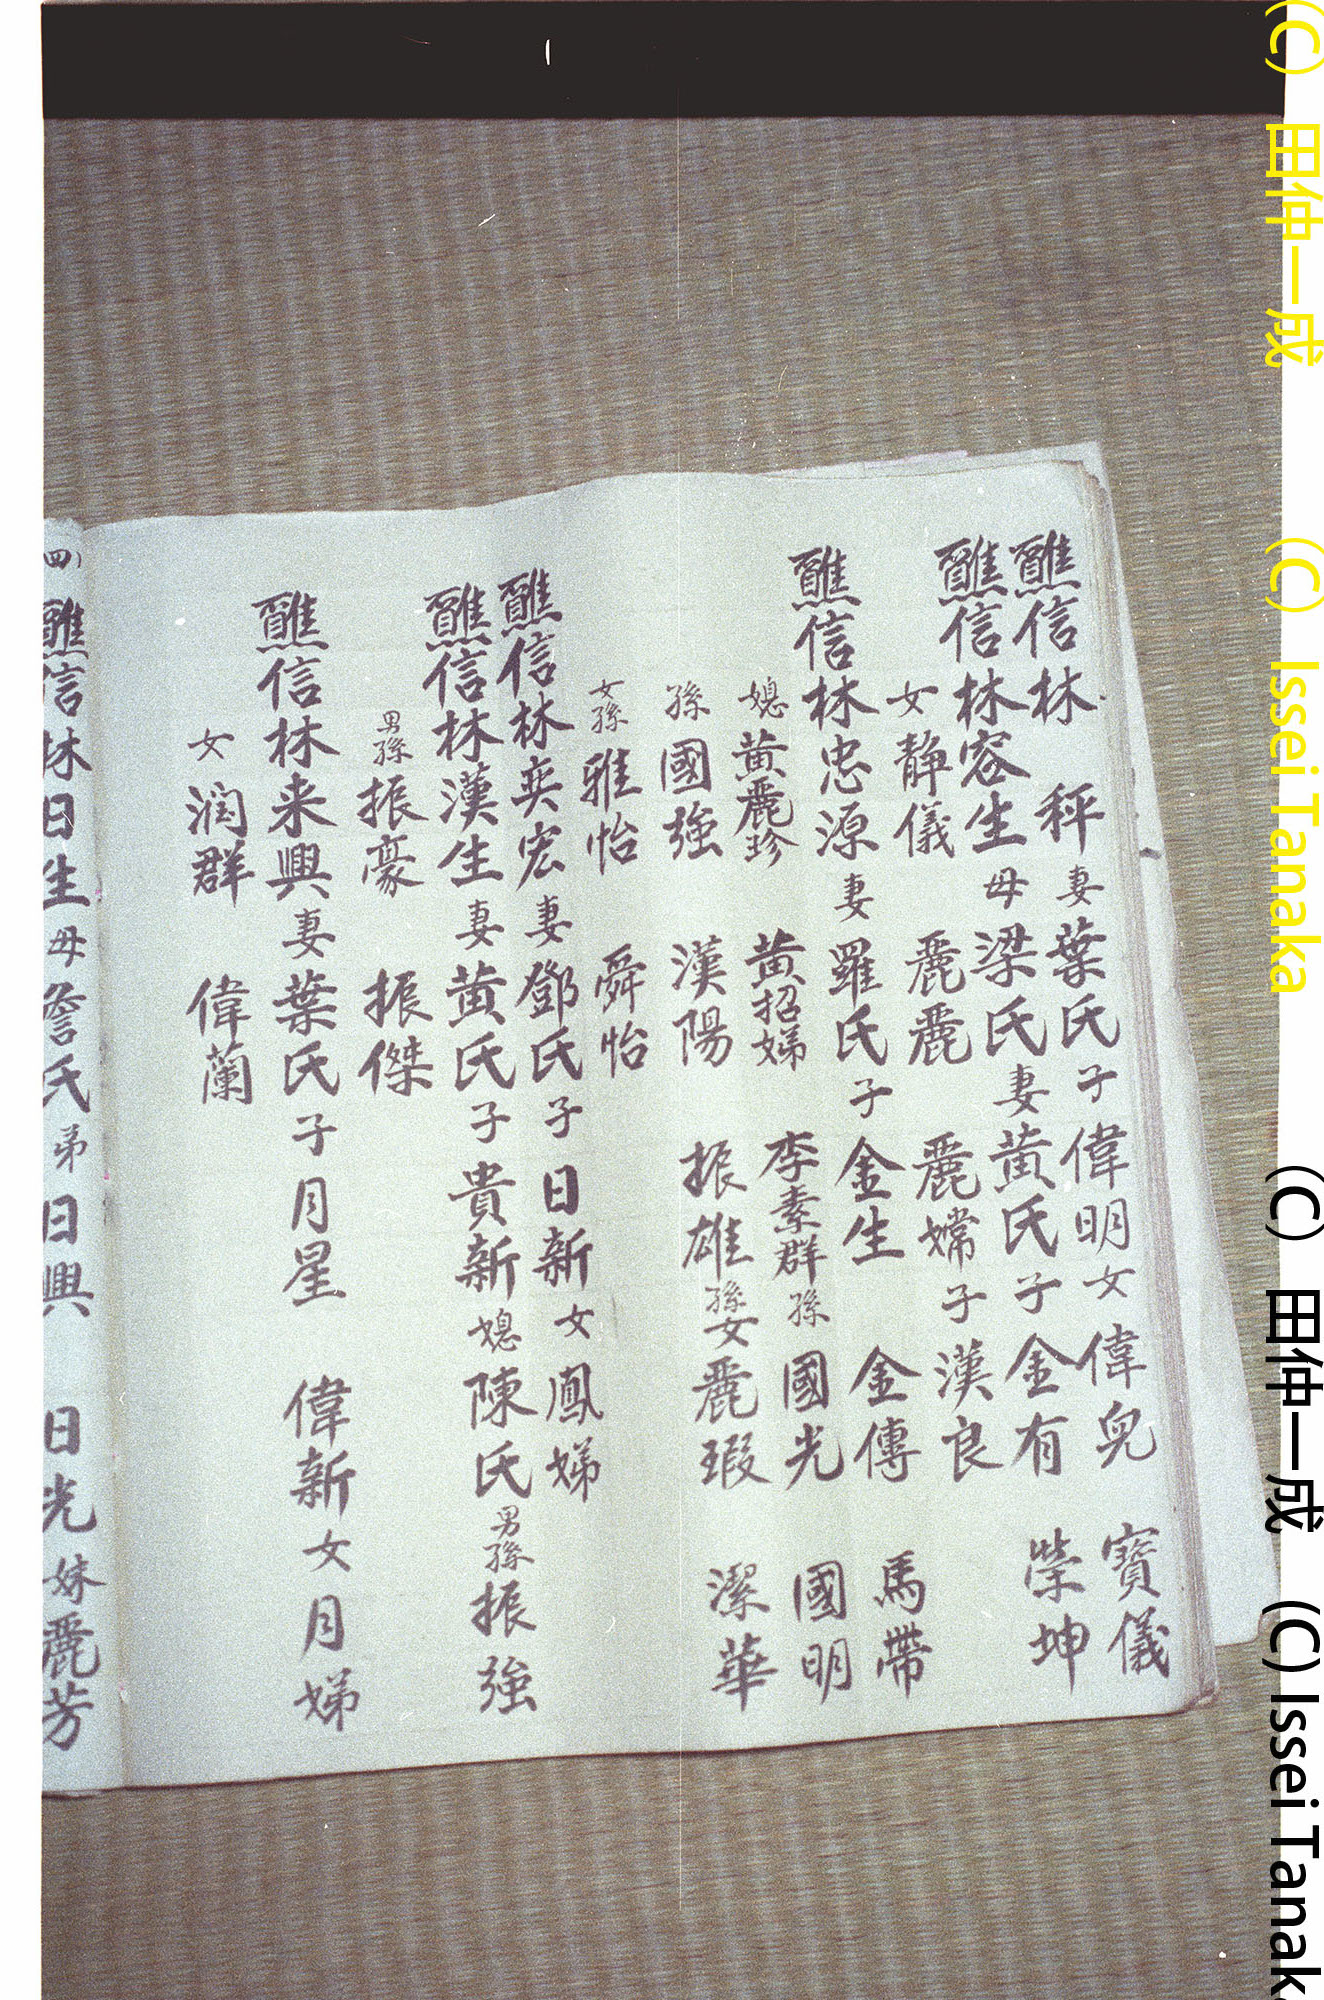 醮信林 秤妻葉氏子偉明女偉兒 寶儀
醮信林容生母梁氏妻黄氏子金有 榮坤
女静儀 麗麗 麗嫦子漢良
醮信林忠源妻羅氏子金生 金傳 馬帶
媳黄麗珍 黄招娣 李素群孫國光 國明
孫國強 漢陽 振雄孫女麗瑕 潔華
女孫雅怡 舜怡
醮信林奕宏妻鄧氏子日新女鳳娣
醮信林漢生妻黄氏子貴新媳陳氏男孫振強
男孫振豪 振傑
醮信林来興妻葉氏子月星 偉新女月娣
女润群 偉蘭
四)
醮信林日生母詹氏弟日興 日光妹麗芳
(C) 田仲一成 (C) Issei Tanaka
(C) 田仲一成 (C) Issei Tanaka